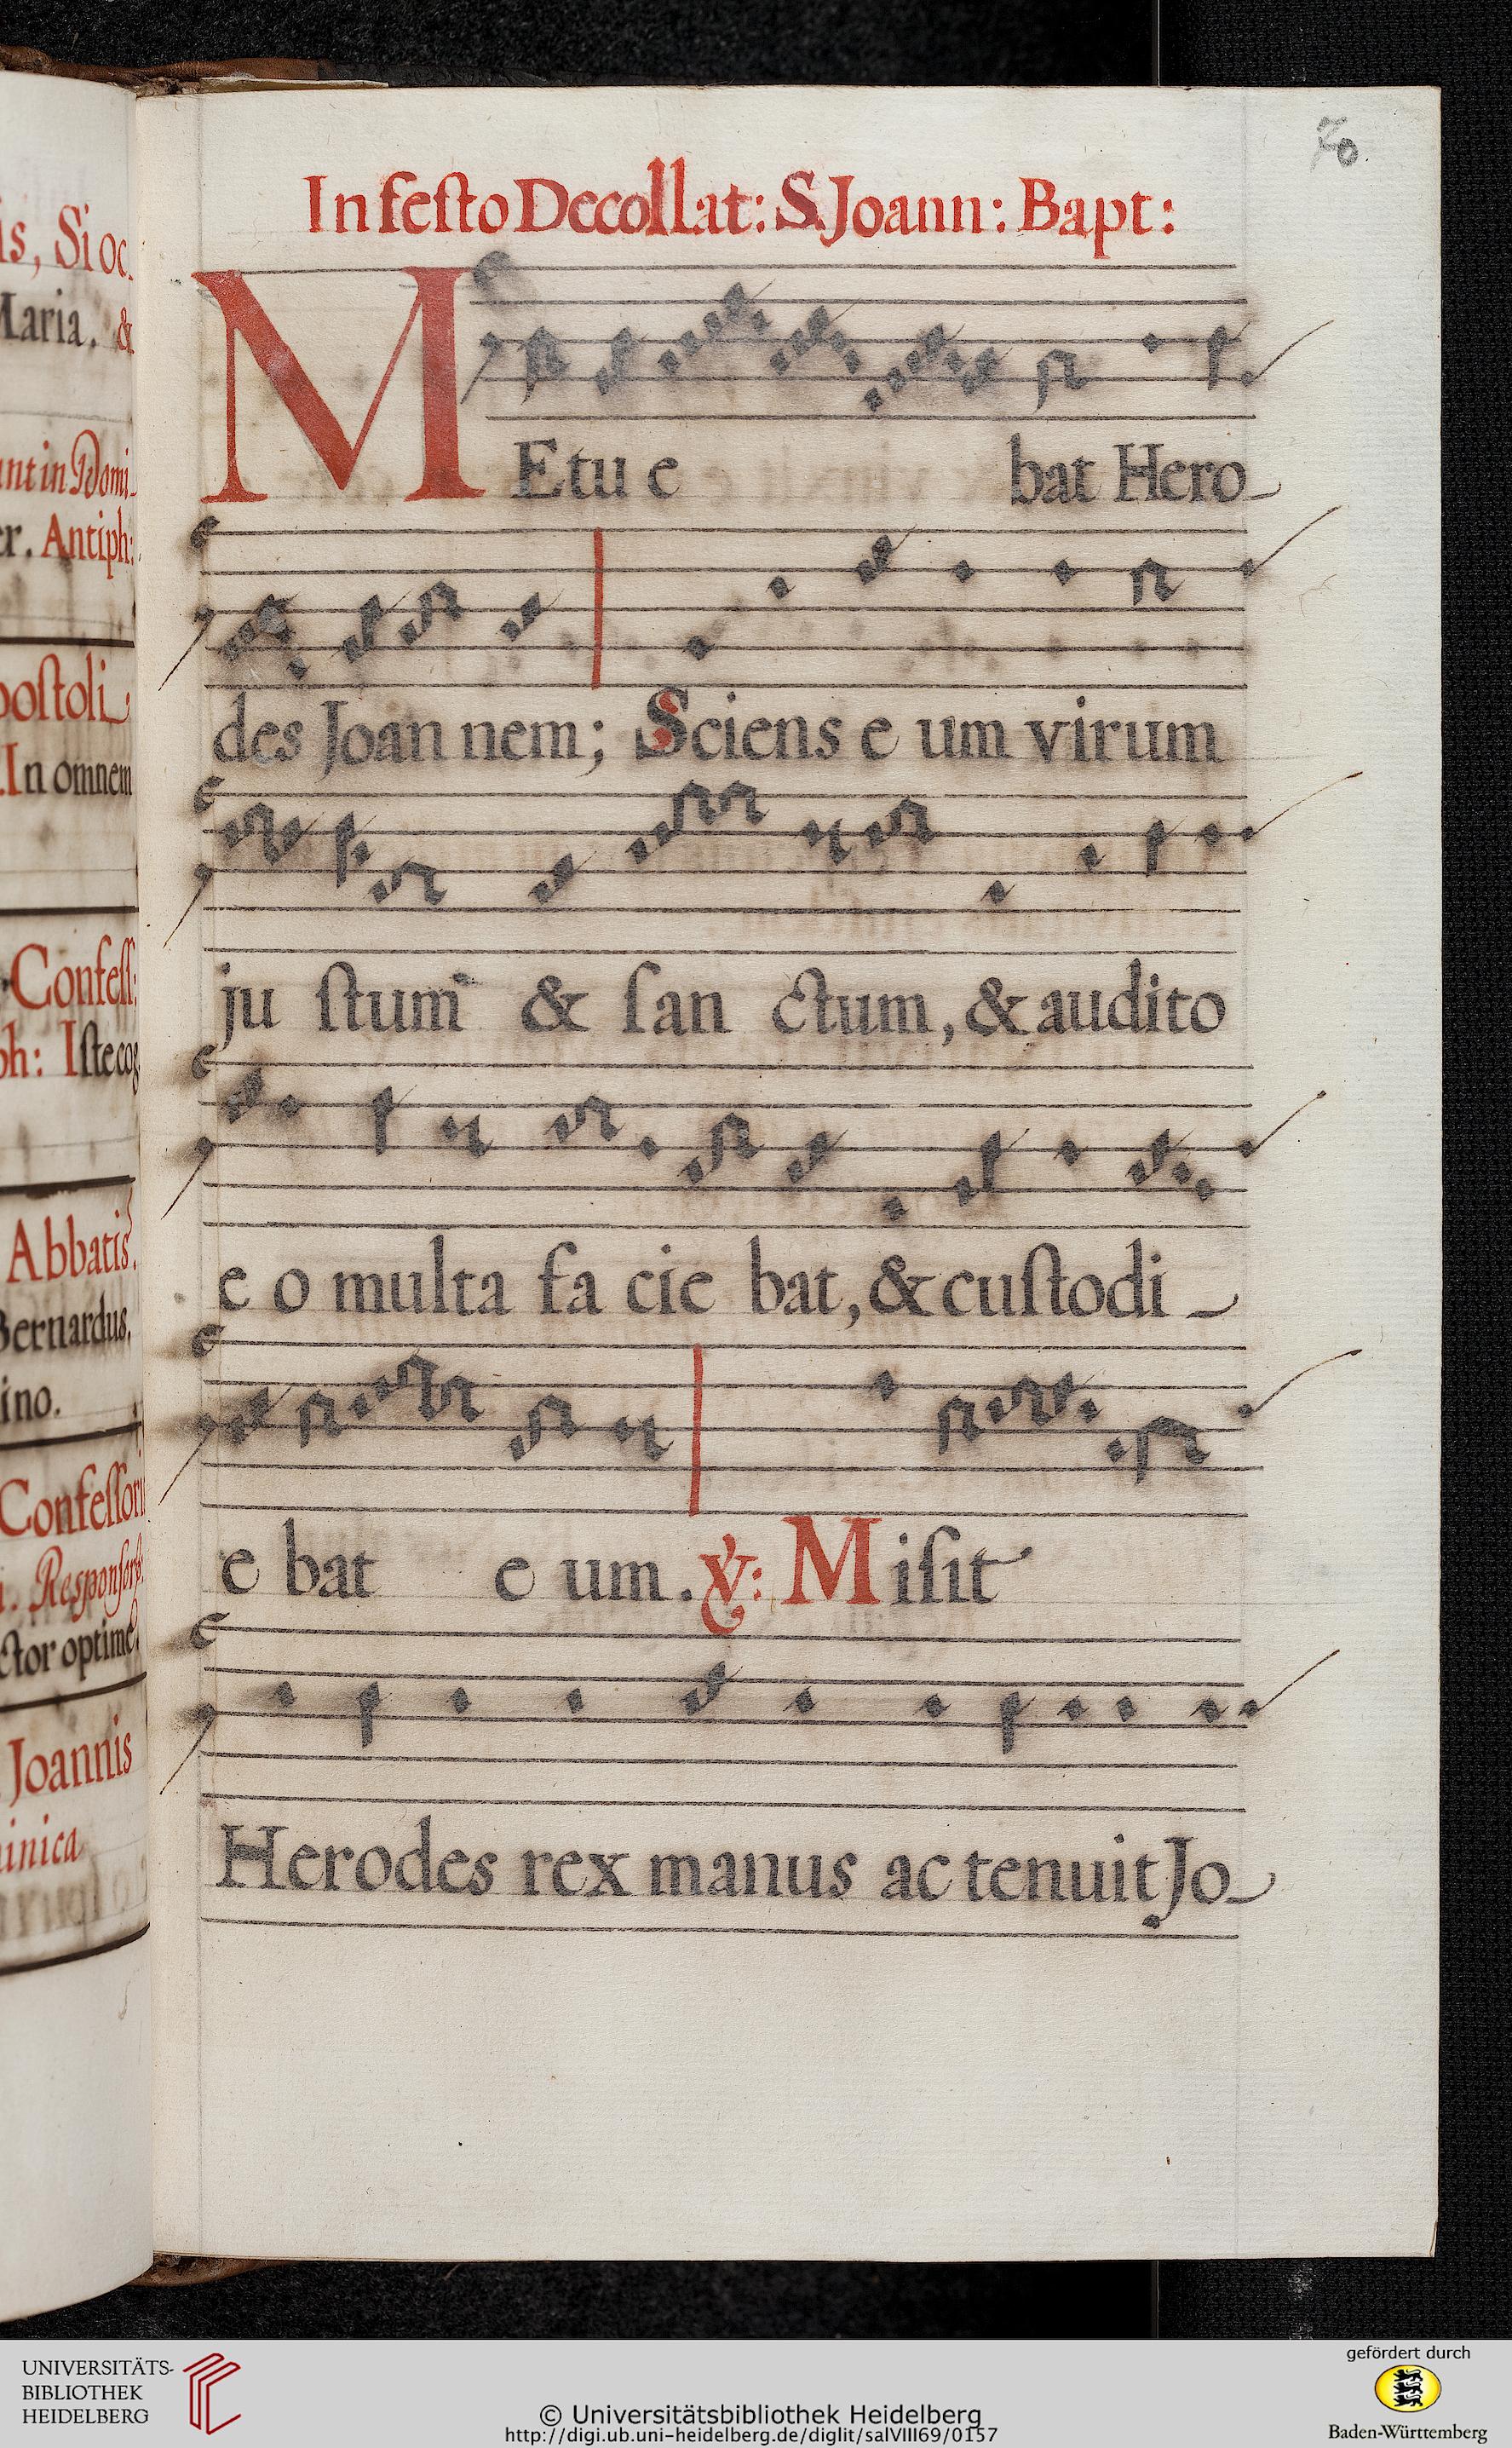 is, Si oc
Maria. &
unt in Domi
er. Antiph:
postoli
In omnem
Confeſſ:
ph: Iſte cog
Abbatis.
Bernardus.
ino.
Confeſſori
Reſponſor
ctor optime
Joannis
inica
70.
In feſto Decollat: S. Joann: Bapt:
METu e bat Hero-
des Joan nem; Sciens e um virum
ju ſtum & ſan ctum, & audito
e o multa fa cie bat, & cuſtodi-
e bat e um. ℣: Miſit
Herodes rex manus ac tenuit Jo-
UNIVERSITÄTS-
BIBLIOTHEK
HEIDELBERG
© Universitätsbibliothek Heidelberg
http://digi.ub.uni-heidelberg.de/diglit/salVIII69/0157
gefördert durch
Baden-Württemberg